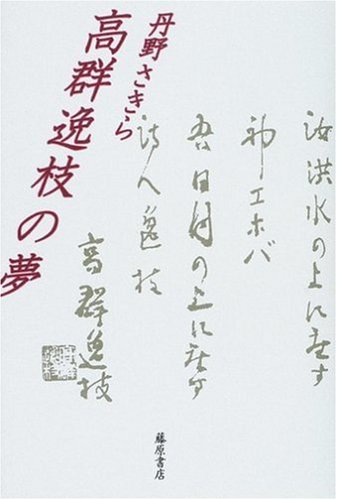 丹野さきら
高群逸枝の夢
汝洪水の上に座す
神エホバ
吾日月の上に座す
詩人逸枝
高群逸枝
藤原書店